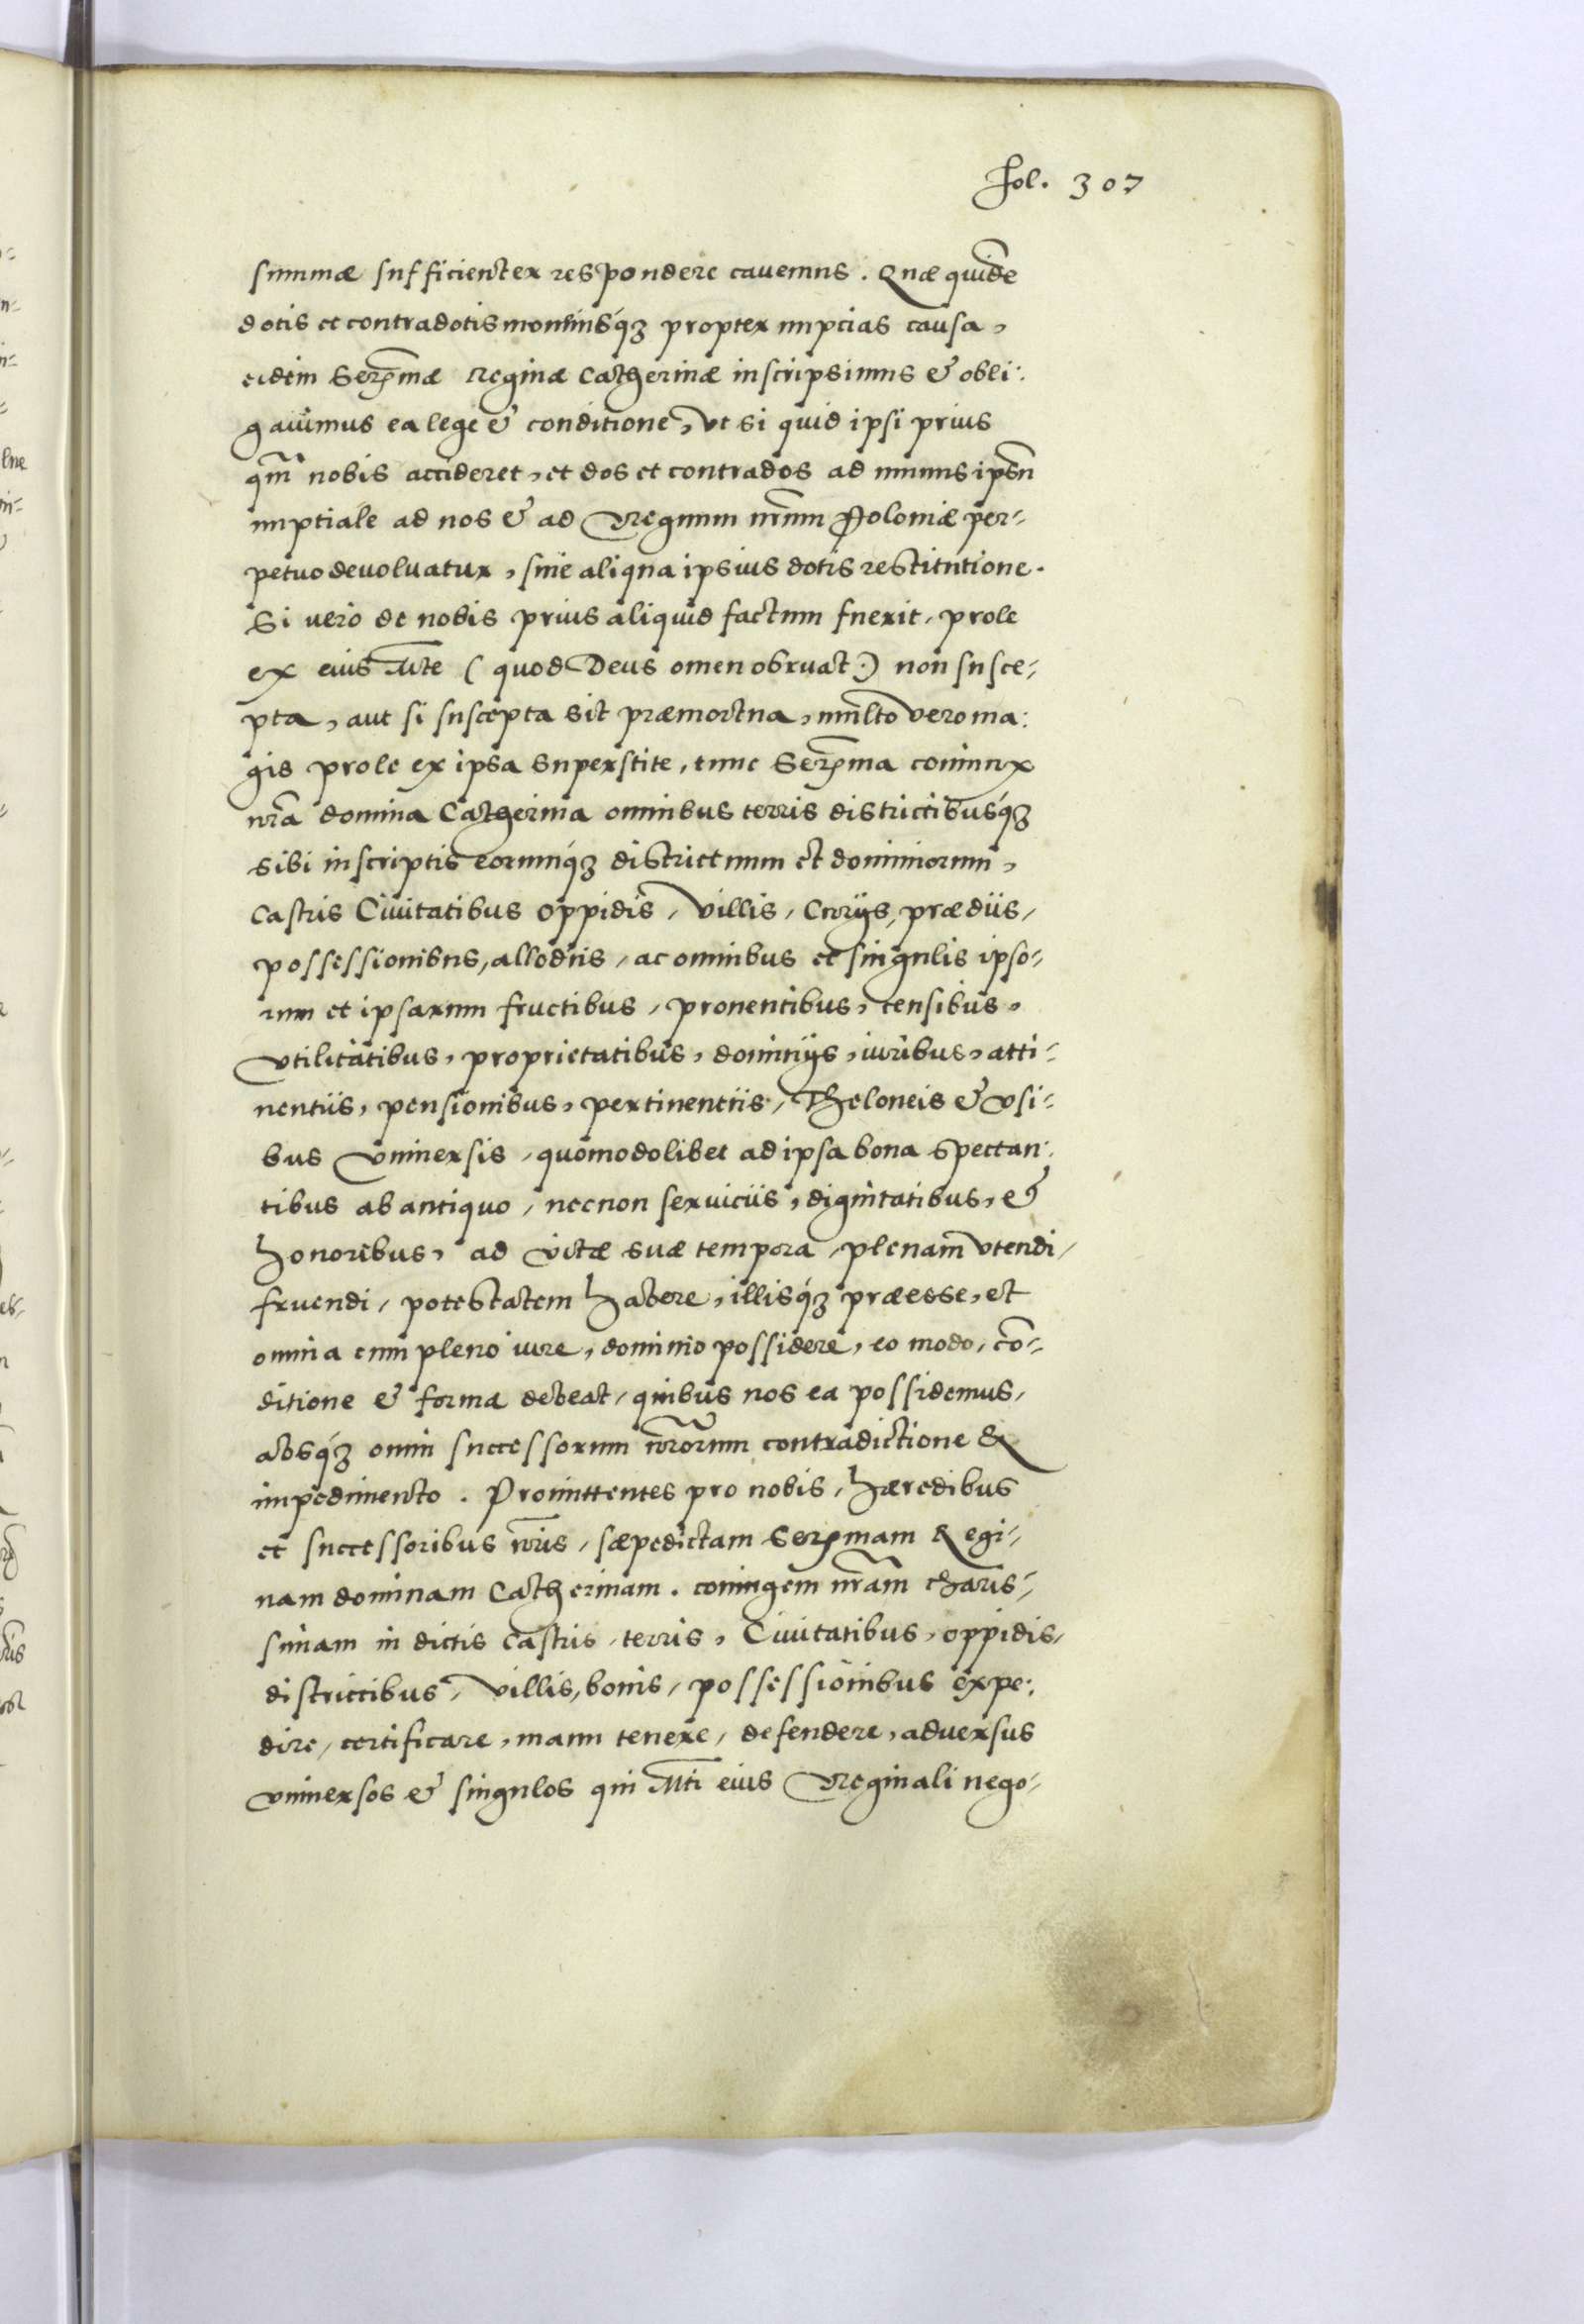 fol. 307
summæ sufficienter respondere cauemus. Quæ quidẽ
dotis et contradotis monerisq́ꝫ propter nupcias causa,
eidem Serẽmæ Reginæ Catherinæ inscripsimus & obli:
gauimus ea lege & conditione, vt si quid ipsi prius
qm̃ nobis accideret, et dos et contrados ad munus ipsũ
nuptiale ad nos & ad Regnum nr̃um Poloniæ per-
petuo deuoluatur, sine aliqua ipsius dotis restitutione.
Si vero de nobis prius aliquid factum fuerit, prole
ex eius Mte (quod Deus omen obruat:) non susce-
pta, aut si suscepta sit præmortua, multo vero ma:
gis prole ex ipsa superstite, tunc Serẽma coniunx
nr̃a domina Catherina omnibus terris districtibusq́ꝫ
sibi inscriptis eorumq́ꝫ districtuum et dominiorum,
Castris Ciuitatibus oppidis, villis, Curijs, prædiis,
possessionibus, allodiis, ac omnibus et singulis ipso-
rum et ipsarum fructibus, prouentibus, censibus,
vtilitatibus, proprietatibus, dominijs, iuribus, atti-
nentiis, pensionibus, pertinentiis, Theloneis & vsi-
bus vniuersis, quomodolibet ad ipsa bona spectan:
tibus ab antiquo, necnon seruiciis, dignitatibus, &
honoribus, ad vitæ suæ tempora, plenam vtendi,
fruendi, potestatem habere, illisq́ꝫ præesse, et
omnia cum pleno iure, dominio possidere, eo modo, cõ-
ditione & forma debeat, quibus nos ea possidemus,
absq́ꝫ omni successorum nr̃orum contradictione &
impedimento. Promittentes pro nobis, hæredibus
et successoribus nr̃is, sæpedictam Serẽmam Regi-
nam dominam Catherinam. coniugem nr̃am charis-
simam in dictis Castris, terris, Ciuitatibus, oppidis,
districtibus, villis, bonis, possessionibus expe:
dire, certificare, manu tenere, defendere, aduersus
vniuersos & singulos qui Mti eius Reginali nego-